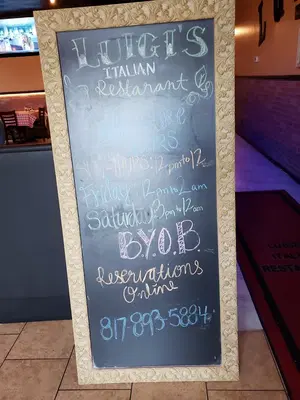 LUIGI'S
ITALIAN
Restarant
Friday 12pm to 2am
Saturday 3pm to 12am
B.Y.O.B.
Reservations
Online
817-893-5884